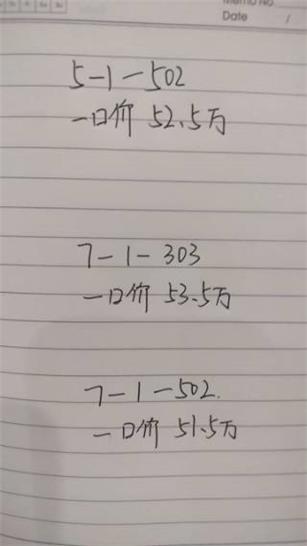 Memo No.
Date /
5-1-502
一口价 52.5万
7-1-303
一口价 53.5万
7-1-502.
一口价 51.5万